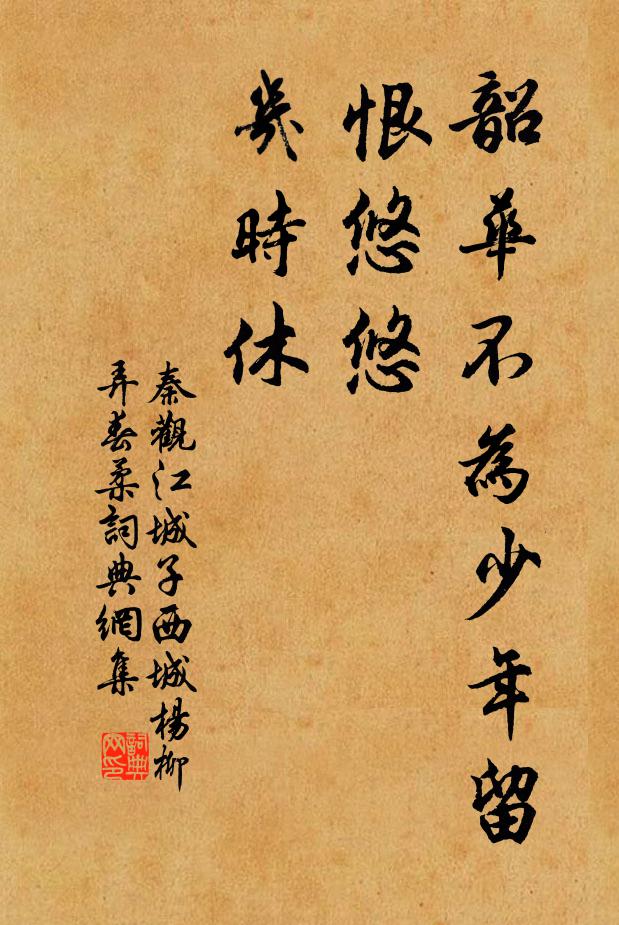 韶華不為少年留
恨悠悠
幾時休
秦觀江城子西城楊柳
弄春柔詞典網集
詞典
网印